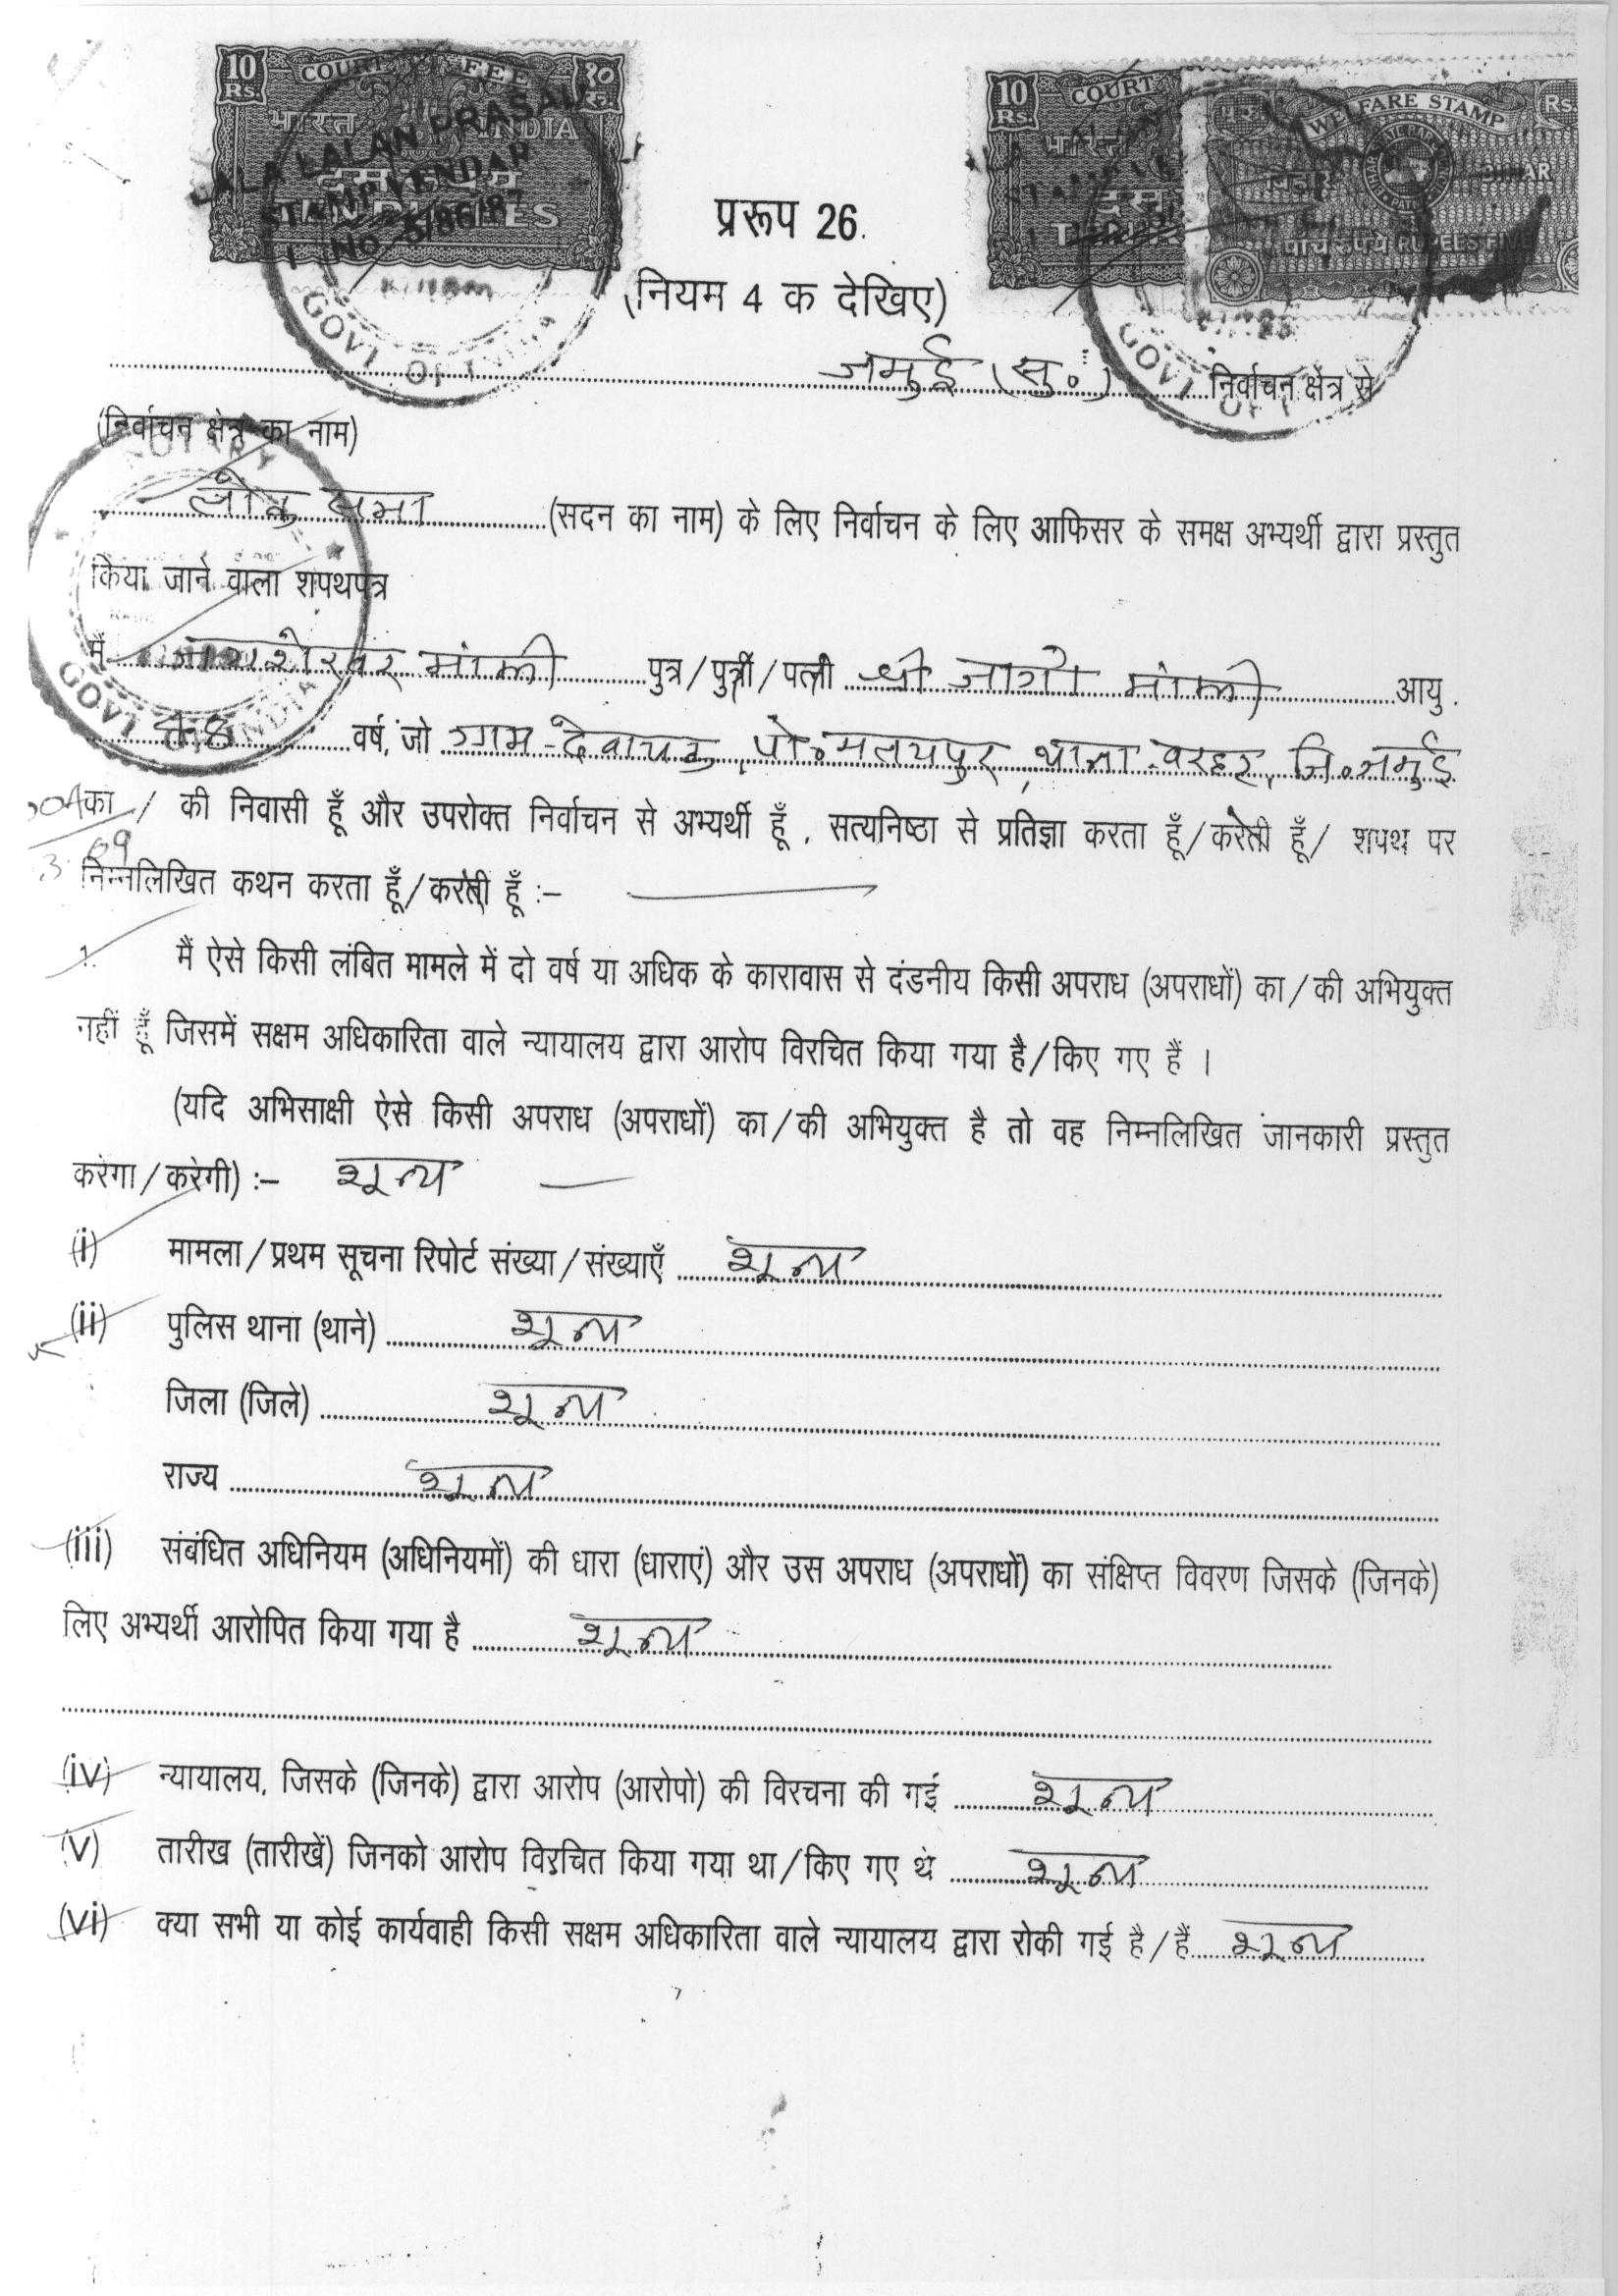 10 Rs. COURT FEE १० रु.
भारत INDIA
LALA LALAN PRASAD
STAMP VENDAR
दस रुपये
TEN RUPEES
L No. 5/86/87
GOVT OF INDIA
10 Rs. COURT
भारत
दस
WELFARE STAMP Rs.
बिहार BIHAR
पाँच रुपये RUPEES FIVE
GOVT
प्ररूप 26.
(नियम 4 क देखिए)
जमुई (सु॰) निर्वाचन क्षेत्र से
(निर्वाचन क्षेत्र का नाम)
NOTARY
लोक सभा (सदन का नाम) के लिए निर्वाचन के लिए आफिसर के समक्ष अभ्यर्थी द्वारा प्रस्तुत
किया जाने वाला शपथपत्र
मैं मांझी पुत्र/पुत्री/पत्नी श्री जागो मांझी आयु.
GOVT OF INDIA
48 वर्ष, जो ग्राम-देवाचक, पो॰मलयपुर, थाना-बरहट, जि॰जमुई
का / की निवासी हूँ और उपरोक्त निर्वाचन से अभ्यर्थी हूँ, सत्यनिष्ठा से प्रतिज्ञा करता हूँ/करती हूँ/ शपथ पर
निम्नलिखित कथन करता हूँ/करती हूँ :–
1. मैं ऐसे किसी लंबित मामले में दो वर्ष या अधिक के कारावास से दंडनीय किसी अपराध (अपराधों) का/की अभियुक्त
नहीं हूँ जिसमें सक्षम अधिकारिता वाले न्यायालय द्वारा आरोप विरचित किया गया है/किए गए हैं ।
(यदि अभिसाक्षी ऐसे किसी अपराध (अपराधों) का/की अभियुक्त है तो वह निम्नलिखित जानकारी प्रस्तुत
करेगा/करेगी) :– शून्य
(i) मामला/प्रथम सूचना रिपोर्ट संख्या/संख्याएँ शून्य
(ii) पुलिस थाना (थाने) शून्य
जिला (जिले) शून्य
राज्य शून्य
(iii) संबंधित अधिनियम (अधिनियमों) की धारा (धाराएं) और उस अपराध (अपराधों) का संक्षिप्त विवरण जिसके (जिनके)
लिए अभ्यर्थी आरोपित किया गया है शून्य
(iv) न्यायालय, जिसके (जिनके) द्वारा आरोप (आरोपो) की विरचना की गई शून्य
(v) तारीख (तारीखें) जिनको आरोप विरचित किया गया था/किए गए थे शून्य
(vi) क्या सभी या कोई कार्यवाही किसी सक्षम अधिकारिता वाले न्यायालय द्वारा रोकी गई है/हैं शून्य